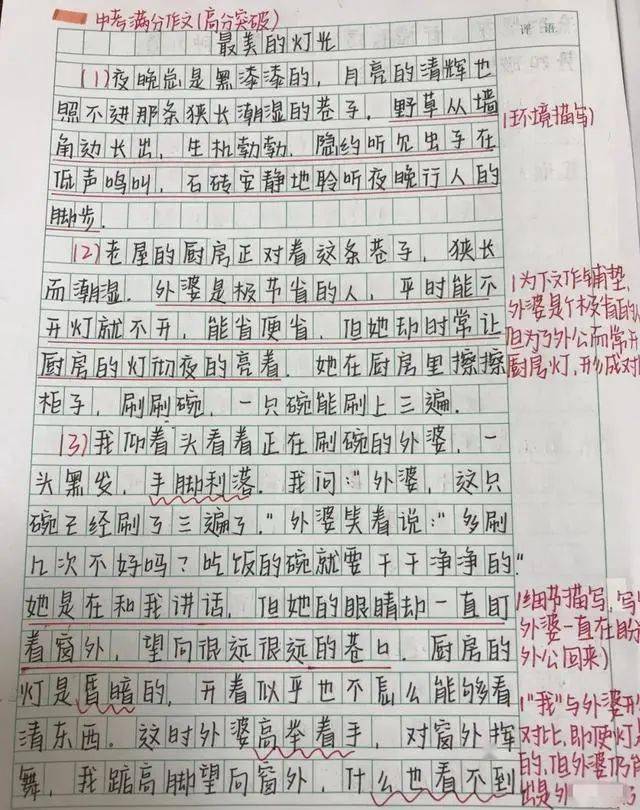 中考满分作文(高分突破)
评语
最美的灯光
(1)夜晚总是黑漆漆的，月亮的清辉也
照不进那条狭长潮湿的巷子，野草从墙
角边长出，生机勃勃，隐约听见虫子在
低声鸣叫，石砖安静地聆听夜晚行人的
脚步.
(环境描写)
(2)老屋的厨房正对着这条巷子，狭长
而潮湿.外婆是极节省的人，平时能不
开灯就不开，能省便省，但她却时常让
厨房的灯彻夜的亮着.她在厨房里擦擦
柜子，刷刷碗，一只碗能刷上三遍.
(为下文作铺垫,
外婆是个极省的
但为了外公而常开
厨房灯,形成对
(3)我仰着头看着正在刷碗的外婆，一
头黑发，手脚利落.我问:"外婆，这只
碗已经刷了三遍了."外婆笑着说:"多刷
几次不好吗?吃饭的碗就要干干净净的."
她是在和我讲话，但她的眼睛却一直盯
着窗外，望向很远很远的巷口.厨房的
灯是昏暗的，开着似乎也不怎么能够看
清东西.这时外婆高举着手，对窗外挥
舞，我踮高脚望向窗外，什么也看不到
(细节描写,写
外婆一直在盼
外公回来)
("我"与外婆形
对比,即便灯
的,但外婆仍
出是外